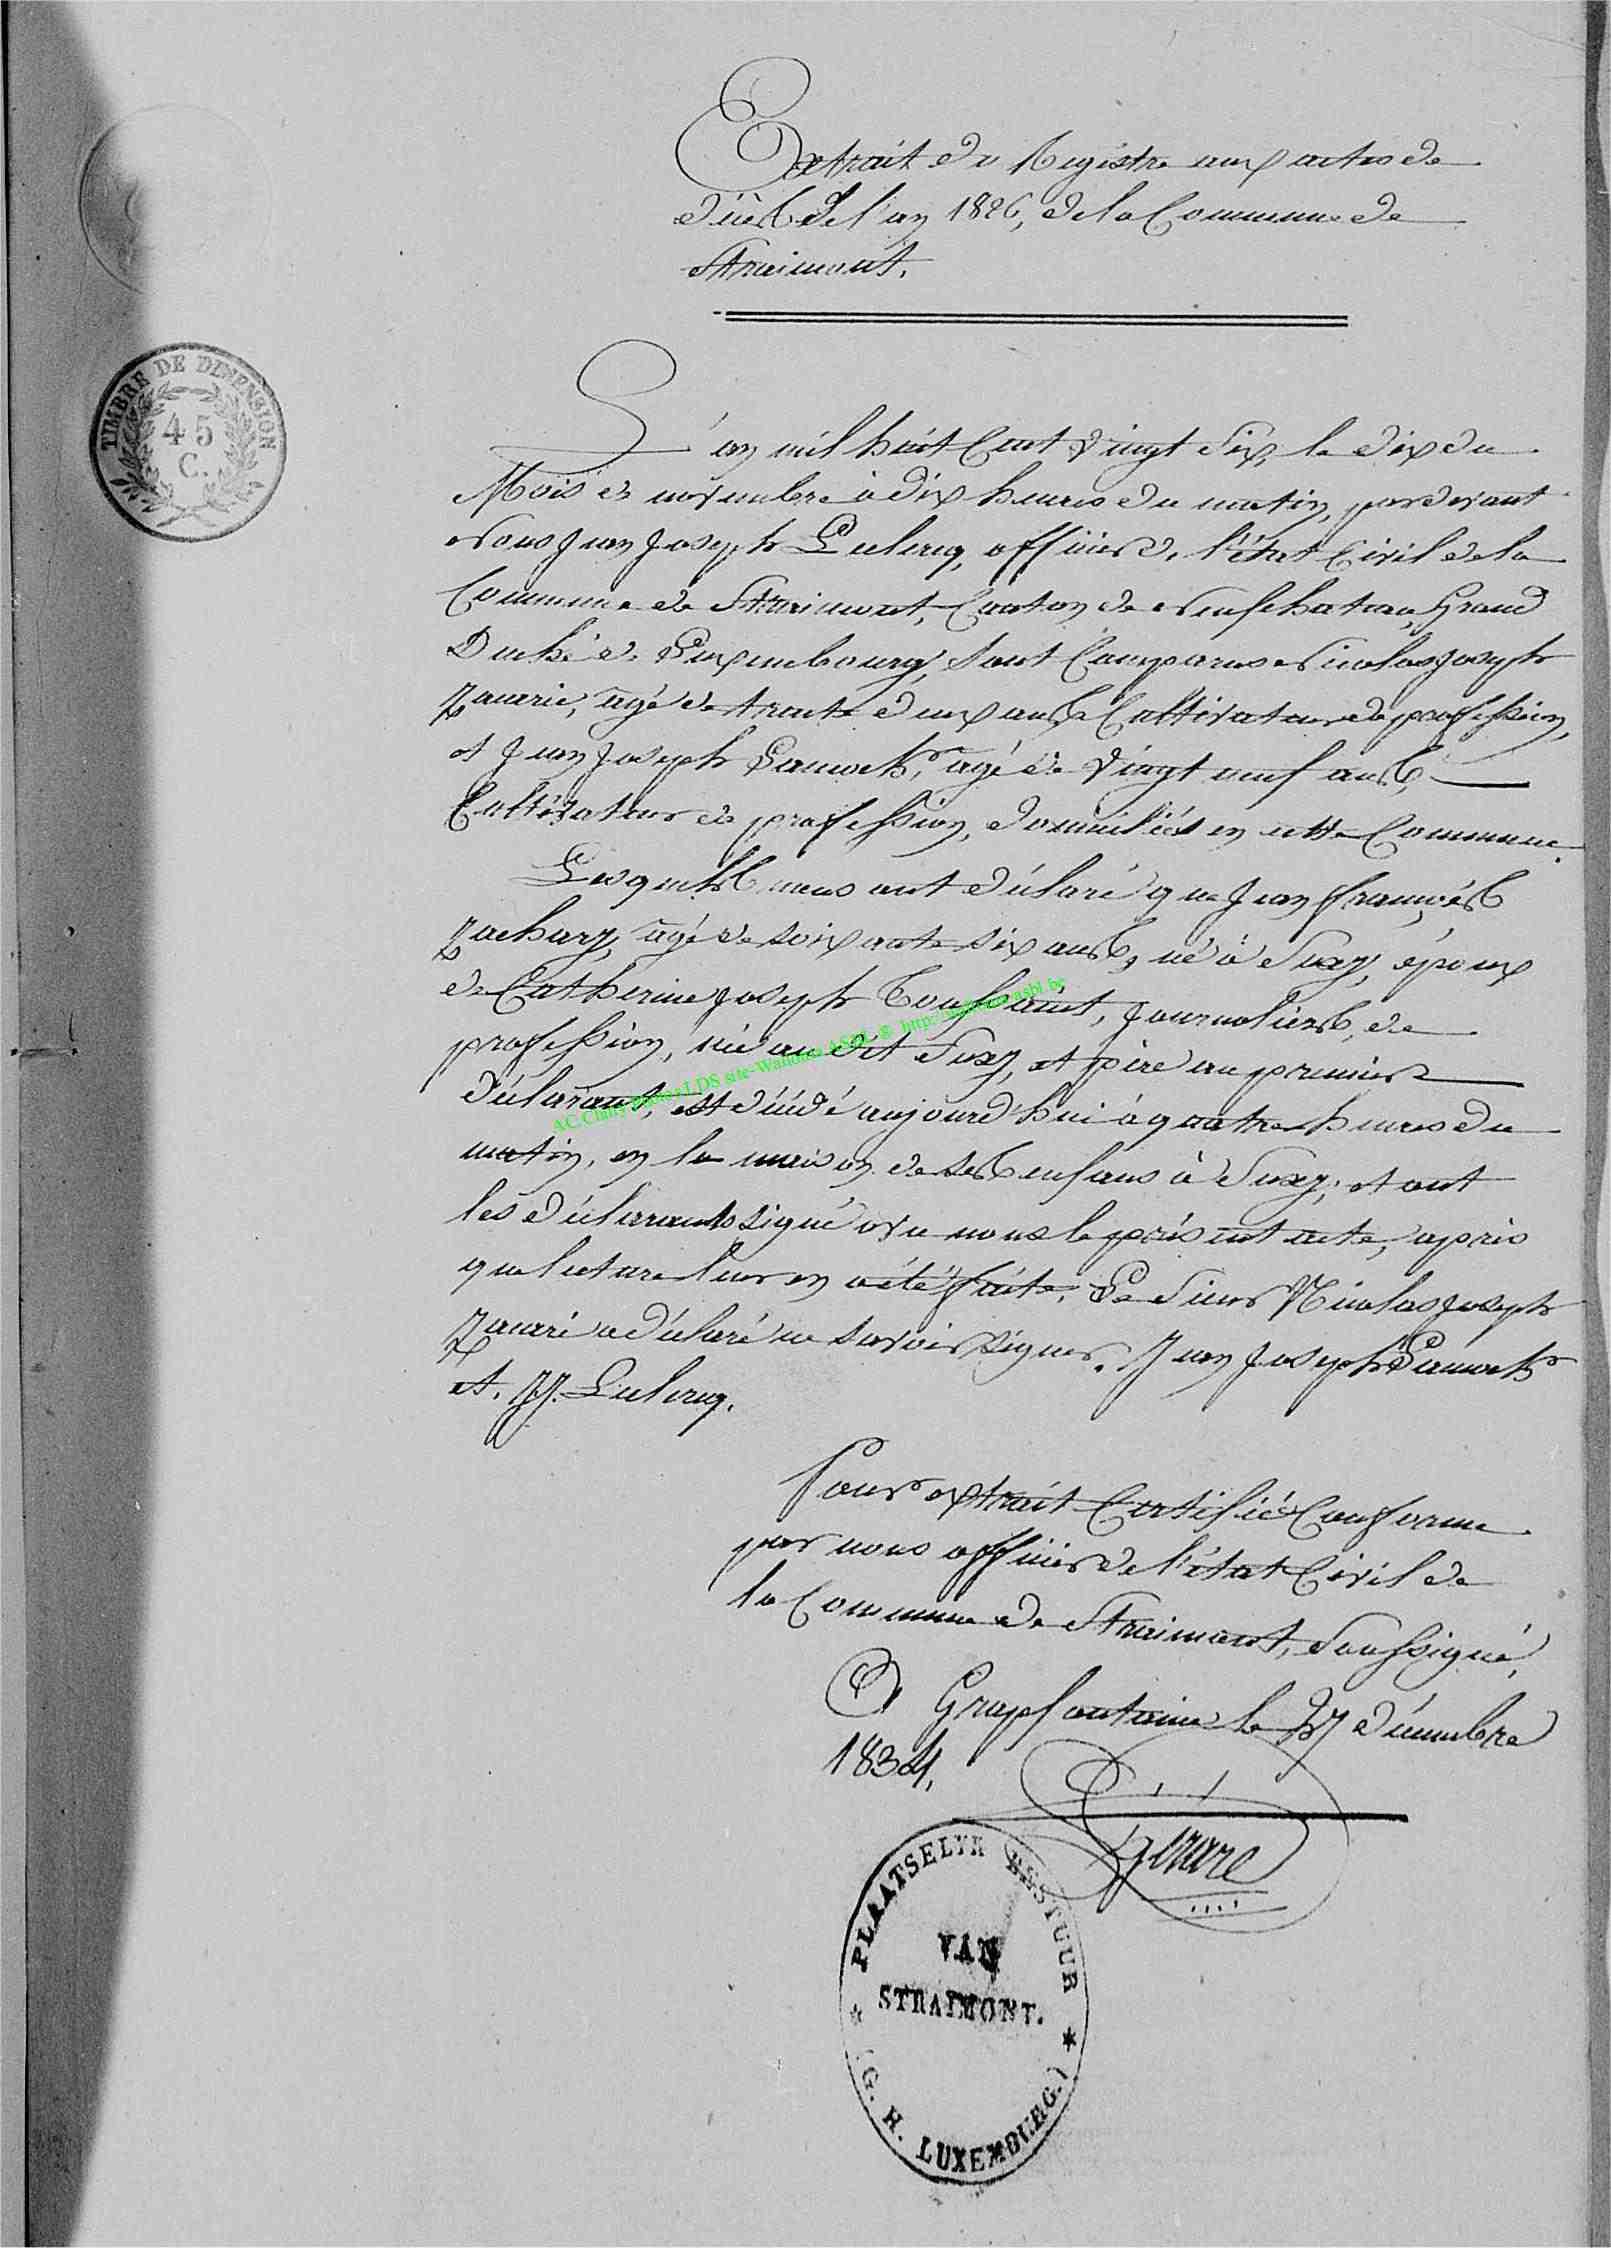 Extrait du Registre aux actes de
décès de l'an 1826, de la Commune de
Straimont.
TIMBRE DE DIMENSION
45
C.
L'an mil huit Cent Vingt Six, le dix du
Mois de novembre à dix heures du matin, pardevant
nous Jean Joseph Leclercq, officier de l'état Civil de la
Commune de Straimont, Canton de neufchateau, Grand
Duché de Luxembourg, sont Comparus Nicolas Joseph
Zacarie, agé de trente deux ans, Cultivateur de profession,
et Jean Joseph Lamock, agé de Vingt neuf ans,
Cultivateur de profession, domiciliés en cette Commune.
Lesquels nous ont déclaré que Jean françois
Zachary, agé de soixante six ans, né à Suxy, époux
de Catherine Joseph Toussaint, journaliers de
profession, née au dit Suxy, et père au premier
déclarant, est décédé aujourd'hui à quatre heures du
matin, en la maison de ses enfans à Suxy; et ont
les déclarants signé avec nous le présent acte, après
que lecture leur en a été faite. Le Sieur Nicolas Joseph
Zacari a déclaré ne savoir signer. Jean Joseph Lamock
et. JJ. Leclercq.
Pour extrait Certifié Conforme
par nous officier de l'état Civil de
la Commune de Straimont, Soussigné,
A Grapfontaine le décembre
1834.
Gérard
PLAATSELYK BESTUUR
VAN
STRAIMONT.
(G. H. LUXEMBURG.)